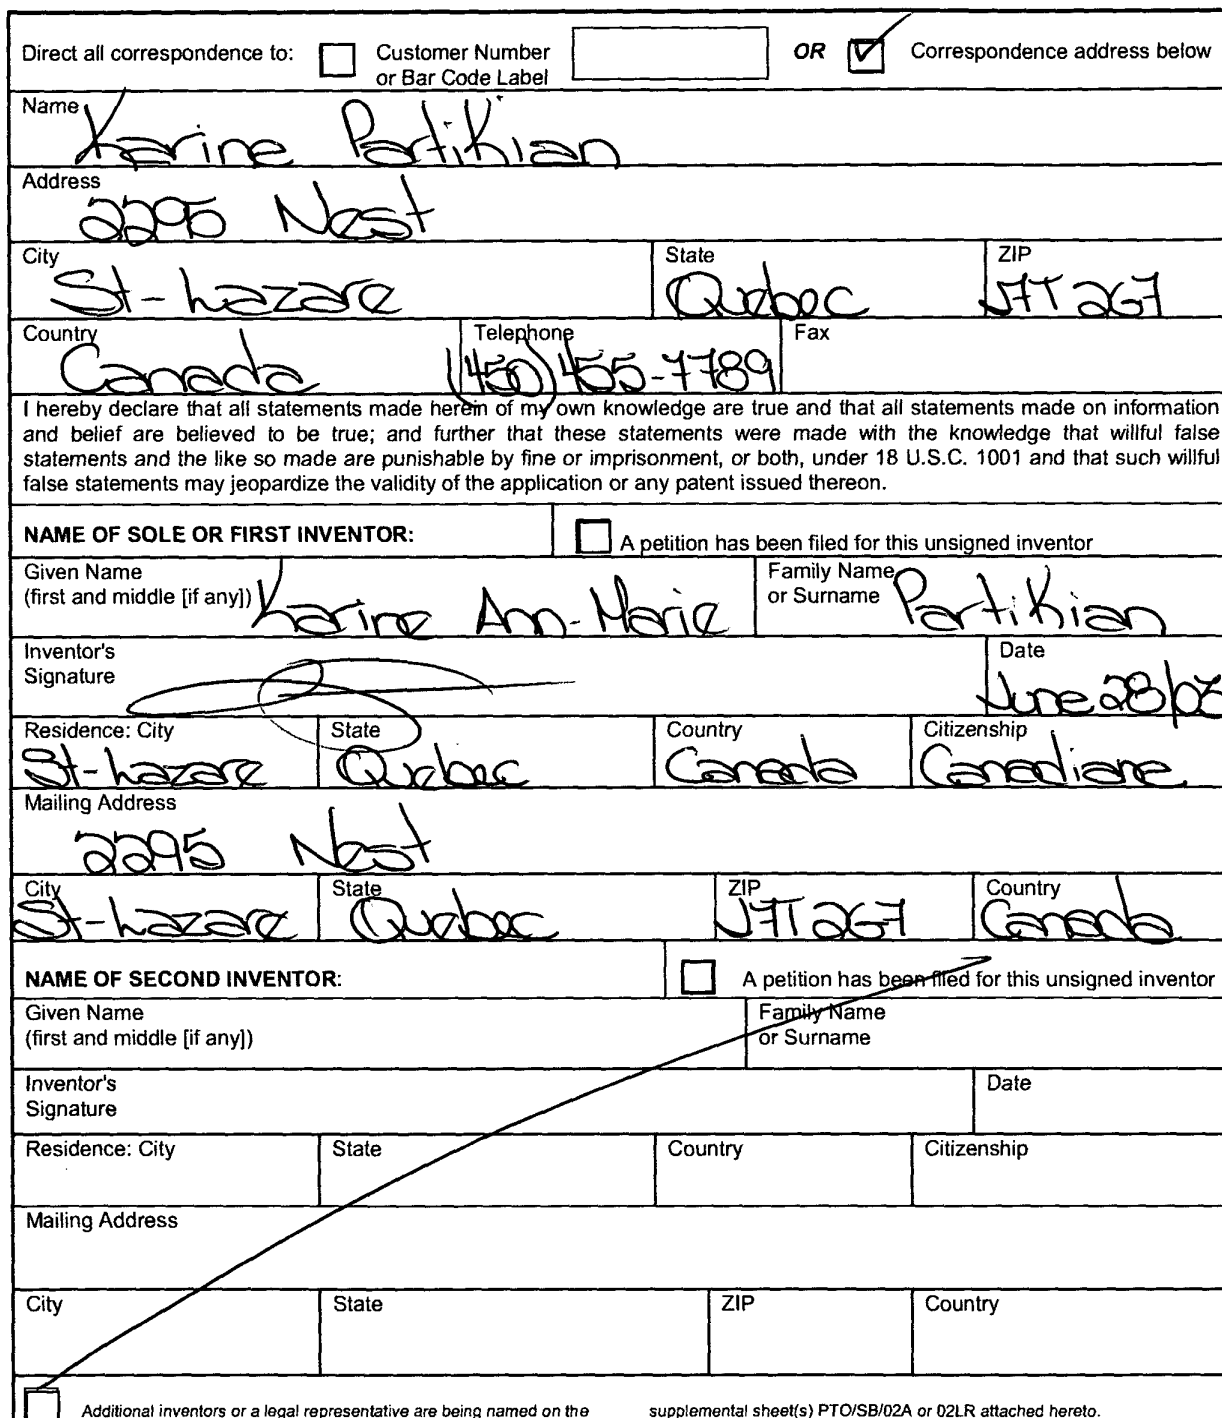 Direct all correspondence to: Customer Number or Bar Code Label OR Correspondence address below
Name
Karine Partikian
Address
2295 Nest
City State ZIP
St-Lazare Quebec J7T 2G7
Country Telephone Fax
Canada (450) 455-7789
I hereby declare that all statements made herein of my own knowledge are true and that all statements made on information
and belief are believed to be true; and further that these statements were made with the knowledge that willful false
statements and the like so made are punishable by fine or imprisonment, or both, under 18 U.S.C. 1001 and that such willful
false statements may jeopardize the validity of the application or any patent issued thereon.
NAME OF SOLE OR FIRST INVENTOR: A petition has been filed for this unsigned inventor
Given Name
(first and middle [if any]) Karine Ann-Marie
Family Name
or Surname Partikian
Inventor's
Signature
Date
June 28/03
Residence: City State Country Citizenship
St-Lazare Quebec Canada Canadiane
Mailing Address
2295 Nest
City State ZIP Country
St-Lazare Quebec J7T 2G7 Canada
NAME OF SECOND INVENTOR: A petition has been filed for this unsigned inventor
Given Name
(first and middle [if any])
Family Name
or Surname
Inventor's
Signature
Date
Residence: City State Country Citizenship
Mailing Address
City State ZIP Country
Additional inventors or a legal representative are being named on the supplemental sheet(s) PTO/SB/02A or 02LR attached hereto.